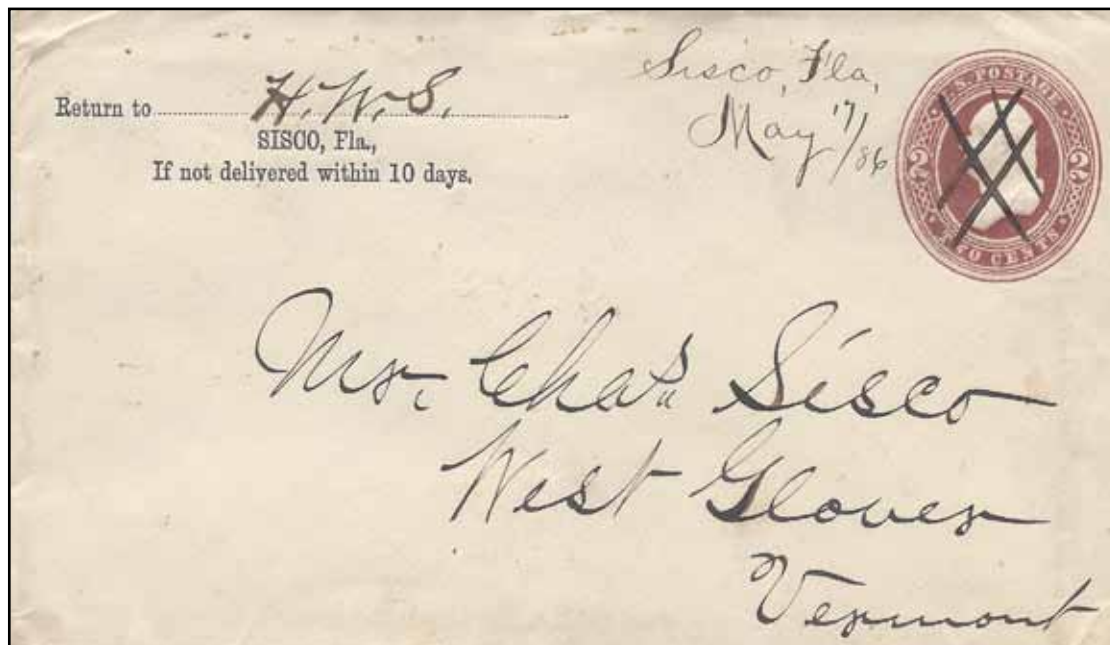 Return to H. W. S.
SISCO, Fla.,
If not delivered within 10 days.
Sisco, Fla,
May 17/86
U.S. POSTAGE
2 2
TWO CENTS
Mr. Chas. Sisco
West Glover
Vermont